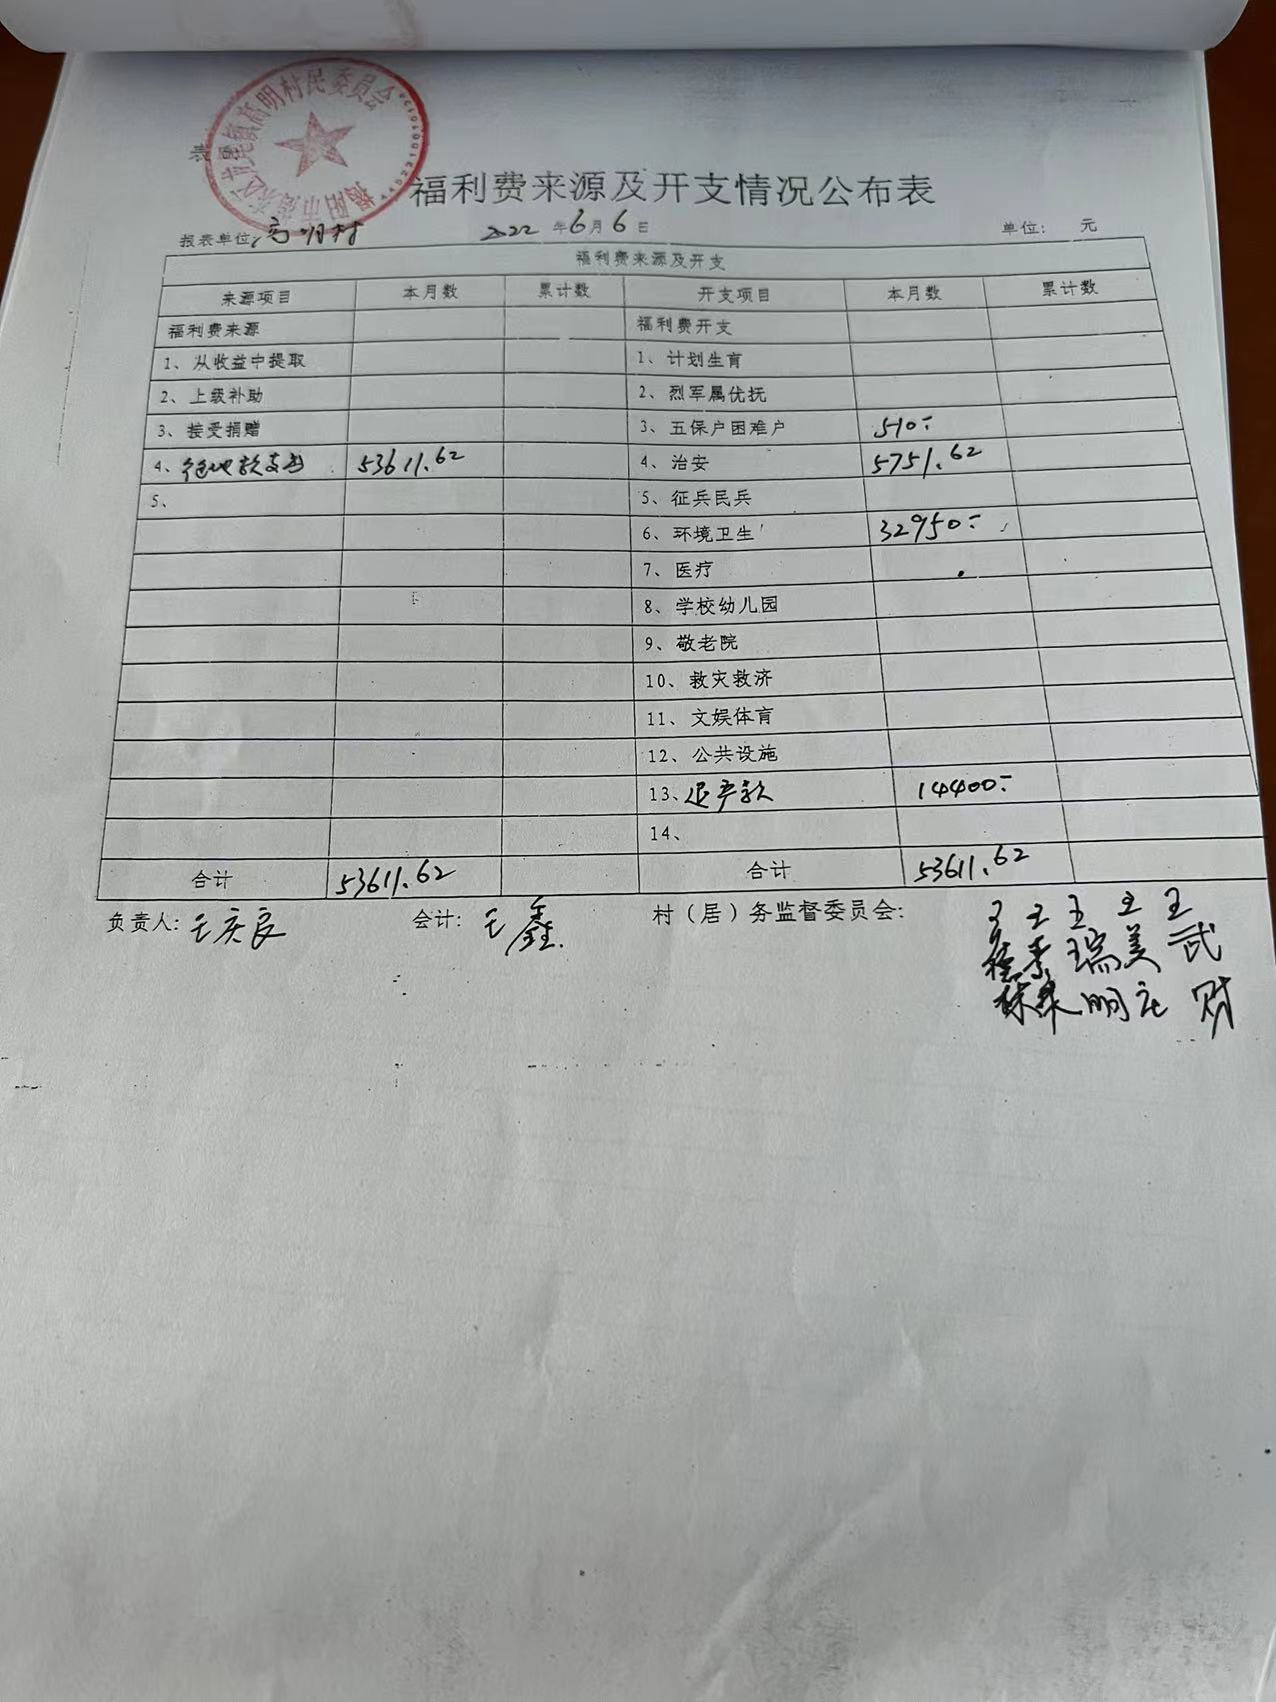 高明村民委员会
福利费来源及开支情况公布表
报表单位:高明村 2022年6月6日 单位: 元
福利费来源及开支
来源项目 本月数 累计数 开支项目 本月数 累计数
福利费来源 福利费开支
1、从收益中提取 1、计划生育
2、上级补助 2、烈军属优抚
3、接受捐赠 3、五保户困难户 510.-
4、 53611.62 4、治安 5751.62
5、 5、征兵民兵
6、环境卫生 32950.-
7、医疗
8、学校幼儿园
9、敬老院
10、救灾救济
11、文娱体育
12、公共设施
13、 14400.-
14、
合计 53611.62 合计 53611.62
负责人:王庆良 会计:王鑫. 村(居)务监督委员会:
王 王 王 王
瑞 美 武
明 财